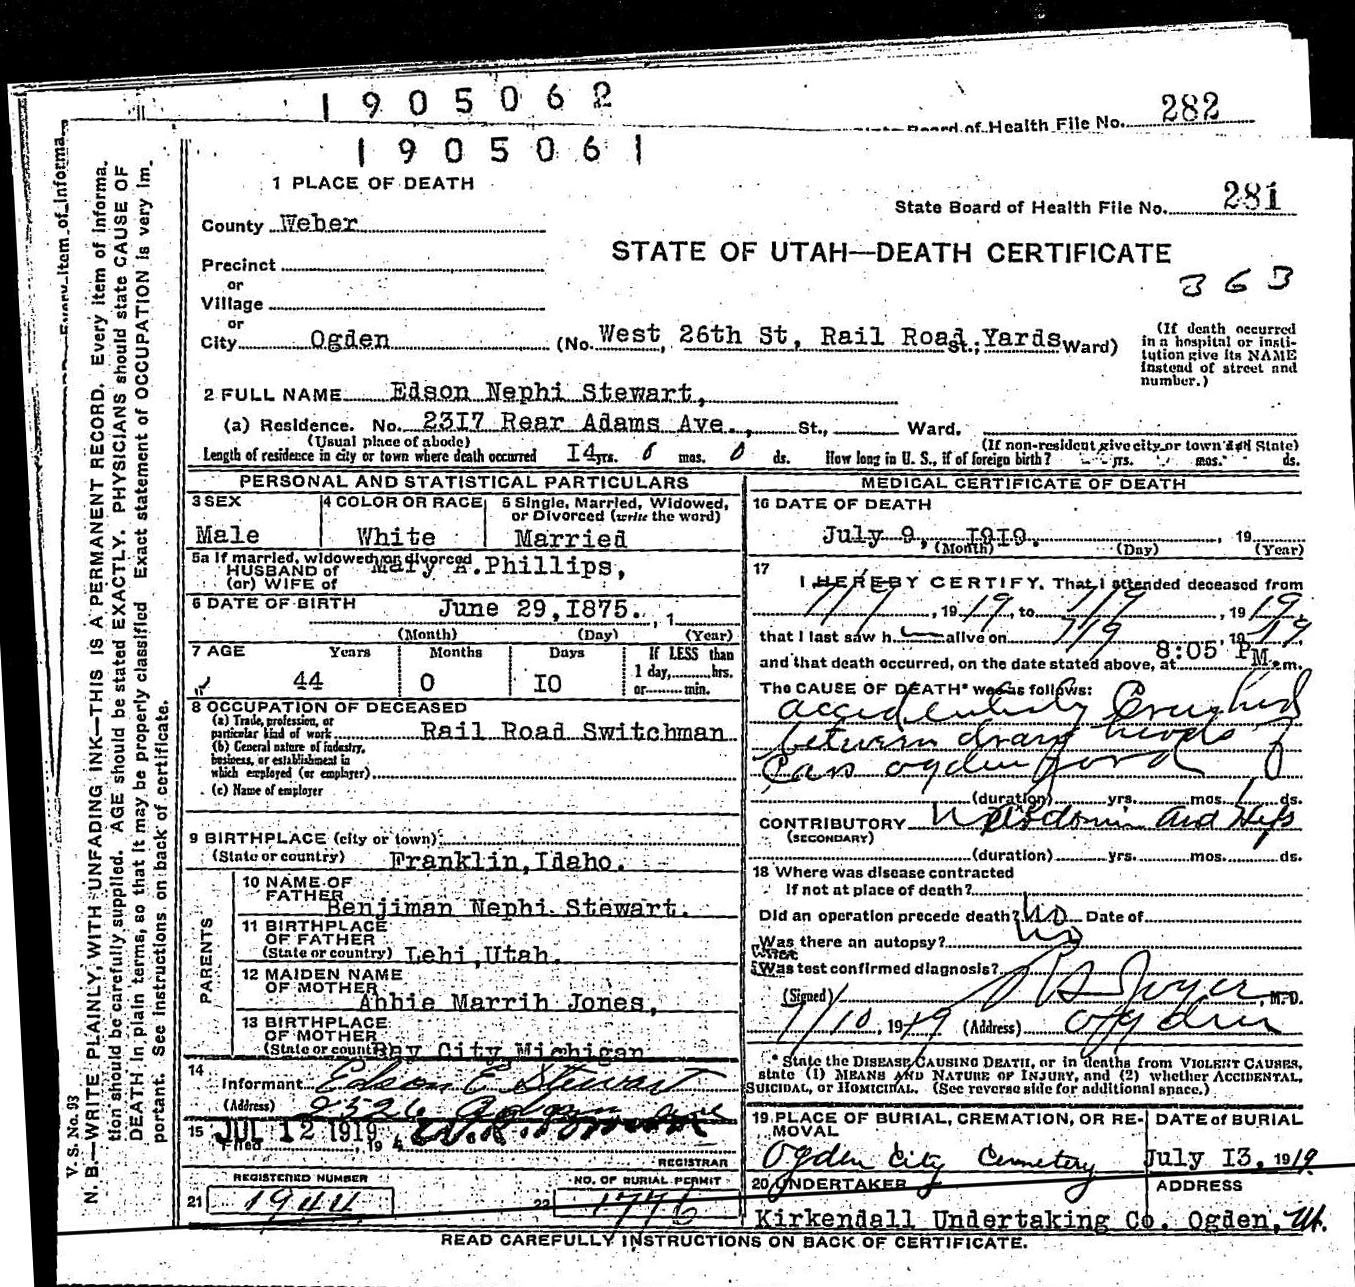 1905062
State Board of Health File No. 282
1905061
1 PLACE OF DEATH
State Board of Health File No. 281
County Weber
STATE OF UTAH—DEATH CERTIFICATE
Precinct
363
or
Village
or
City Ogden (No. West 26th St, Rail Road Yards St.; Ward)
(If death occurred in a hospital or insti-
tution give its NAME
instead of street and
number.)
2 FULL NAME Edson Nephi Stewart,
(a) Residence. No. 2317 Rear Adams Ave., St., Ward.
(Usual place of abode) (If non-resident give city or town and State)
Length of residence in city or town where death occurred 14 yrs. 0 mos. 0 ds. How long in U. S., if of foreign birth? yrs. mos. ds.
PERSONAL AND STATISTICAL PARTICULARS
3 SEX 4 COLOR OR RACE 5 Single, Married, Widowed,
or Divorced (write the word)
Male White Married
5a If married, widowed or divorced
HUSBAND of Mary A. Phillips,
(or) WIFE of
6 DATE OF BIRTH June 29, 1875. , 1
(Month) (Day) (Year)
7 AGE Years Months Days If LESS than
1 day, hrs.
44 0 10 or min.
8 OCCUPATION OF DECEASED
(a) Trade, profession, or
particular kind of work Rail Road Switchman
(b) General nature of industry,
business, or establishment in
which employed (or employer)
(c) Name of employer
9 BIRTHPLACE (city or town)
(State or country) Franklin, Idaho.
PARENTS
10 NAME OF
FATHER Benjiman Nephi Stewart.
11 BIRTHPLACE
OF FATHER
(State or country) Lehi, Utah.
12 MAIDEN NAME
OF MOTHER Abbie Marrih Jones,
13 BIRTHPLACE
OF MOTHER
(State or country) Bay City Michigan
14
Informant Edson E Stewart
(Address) 2526 Ogden ave
15 JUL 12 1919
Filed , 19
REGISTRAR
REGISTERED NUMBER NO. OF BURIAL PERMIT
21 1944 22 1776
MEDICAL CERTIFICATE OF DEATH
16 DATE OF DEATH
July 9, 1919. , 19
(Month) (Day) (Year)
17
I HEREBY CERTIFY, That I attended deceased from
7/9, 1919, to 7/9, 1919
that I last saw h alive on 7/9, 1919
and that death occurred, on the date stated above, at 8:05 PM m.
The CAUSE OF DEATH* was as follows:
accidentally Crushed
between draw heads of
Cars Ogden yard
(duration) yrs. mos. 1 ds.
CONTRIBUTORY abdomin and Hips
(SECONDARY)
(duration) yrs. mos. ds.
18 Where was disease contracted
if not at place of death?
Did an operation precede death? No Date of
Was there an autopsy? No
What
Was test confirmed diagnosis?
(Signed) M. D.
7/10, 1919 (Address) Ogden
* State the DISEASE CAUSING DEATH, or in deaths from VIOLENT CAUSES,
state (1) MEANS AND NATURE OF INJURY, and (2) whether ACCIDENTAL,
SUICIDAL, or HOMICIDAL. (See reverse side for additional space.)
19 PLACE OF BURIAL, CREMATION, OR RE-
MOVAL
DATE of BURIAL
Ogden City Cemetery July 13, 1919
20 UNDERTAKER ADDRESS
Kirkendall Undertaking Co. Ogden, Ut.
READ CAREFULLY INSTRUCTIONS ON BACK OF CERTIFICATE.
V. S. No. 93
N. B.—WRITE PLAINLY, WITH UNFADING INK—THIS IS A PERMANENT RECORD. Every item of informa-
tion should be carefully supplied. AGE should be stated EXACTLY. PHYSICIANS should state CAUSE OF
DEATH in plain terms, so that it may be properly classified Exact statement of OCCUPATION is very im-
portant. See instructions on back of certificate.
Every item of informa-